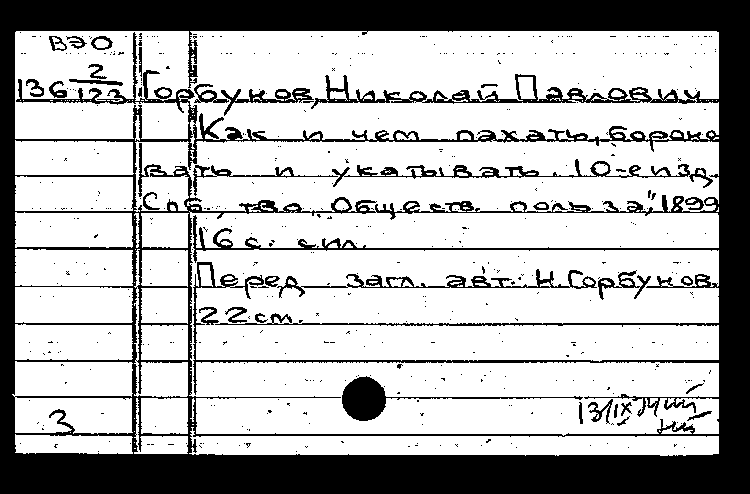 ВЭО
136 2/123 Горбунов, Николай Павлович
Как и чем пахать, бороно
вать и укатывать. 10-е изд.
Спб, тво „Обществ. польза", 1899
16 с. с ил.
Перед загл. авт.: Н. Горбунов.
22 см.
3
13/IX